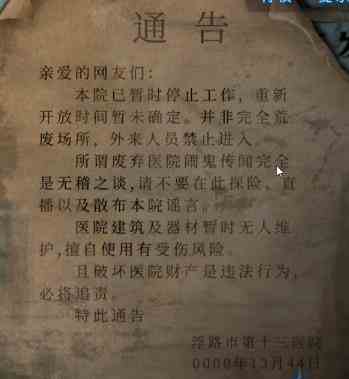 通 告
亲爱的网友们：
本院已暂时停止工作，重新
开放时间暂未确定。并非完全荒
废场所，外来人员禁止进入。
所谓废弃医院闹鬼传闻完全
是无稽之谈,请不要在此探险、直
播以及散布本院谣言。
医院建筑及器材暂时无人维
护,擅自使用有受伤风险。
且破坏医院财产是违法行为，
必将追责。
特此通告
浮路市第十三医院
0000年13月44日